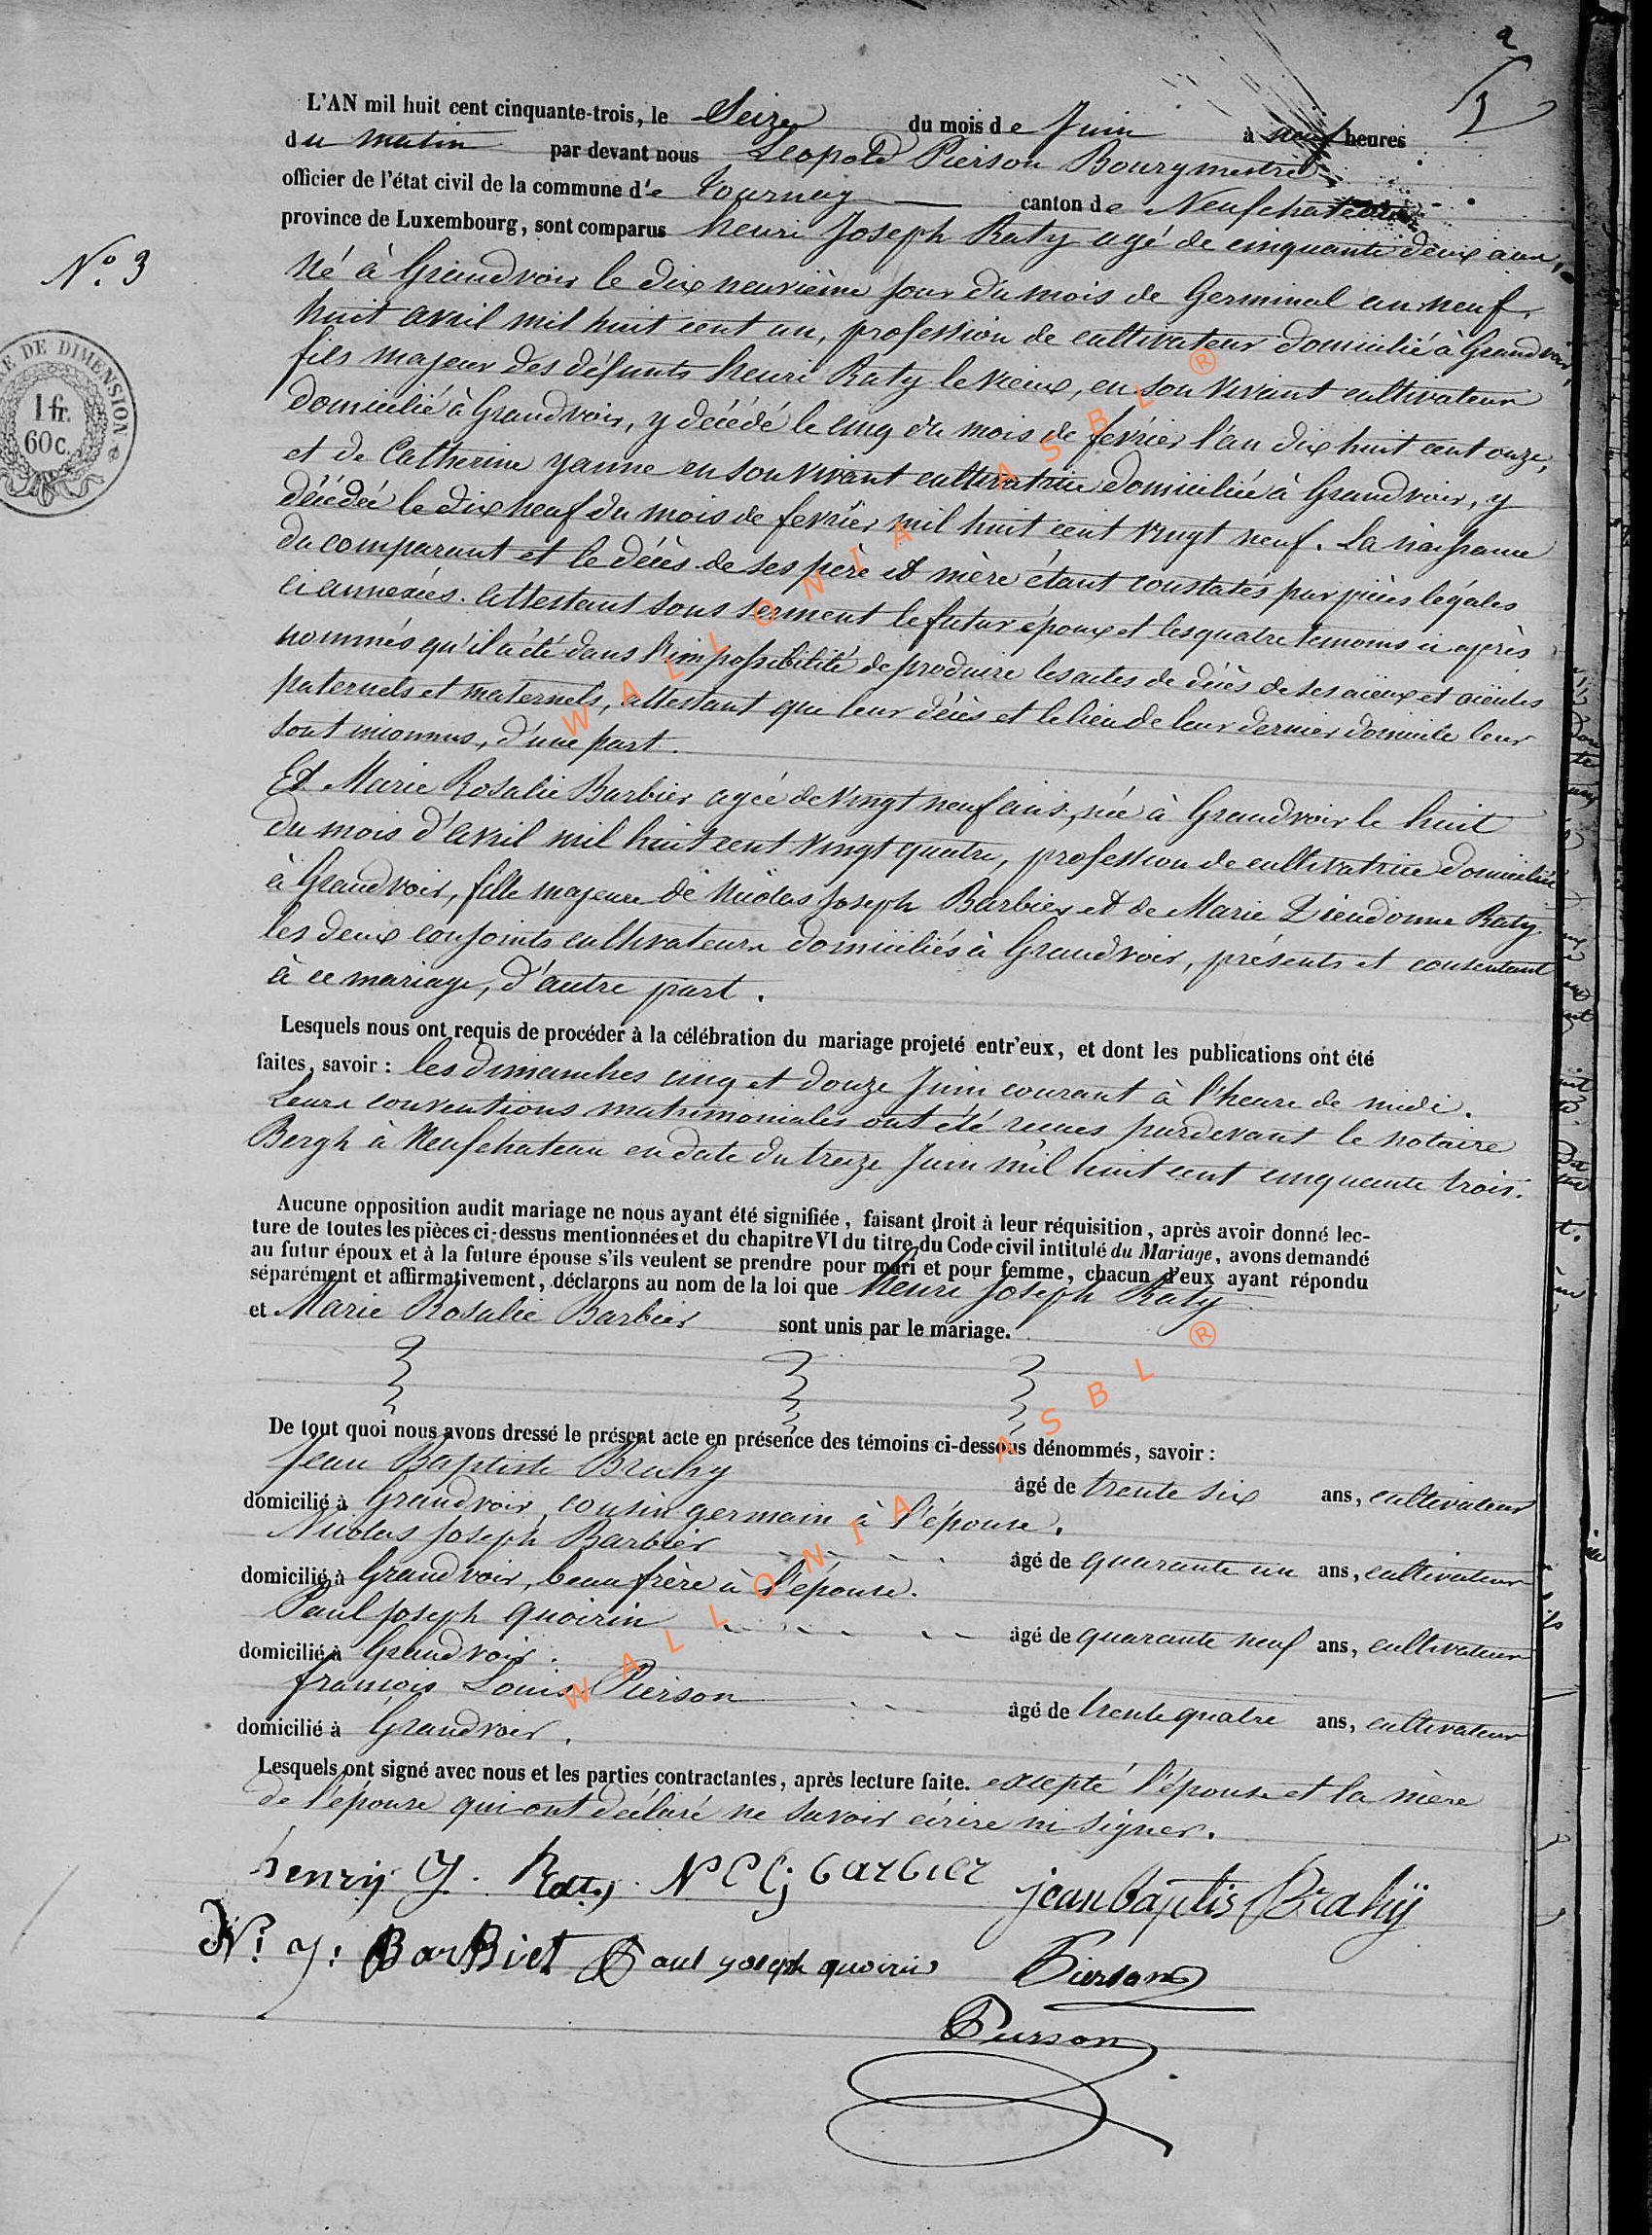 2
L'AN mil huit cent cinquante-trois, le Seize du mois de Juin à neuf heures
du matin par devant nous Léopold Pierson Bourgmestre
officier de l'état civil de la commune de Tournay canton de Neufchateau
province de Luxembourg, sont comparus henri Joseph Raty agé de cinquante deux ans,
N.o 3
né à Grandvoir le dix neuvième jour du mois de Germinal an neuf,
huit avril mil huit cent un, profession de cultivateur domicilié à Grandvoir,
fils majeur des défunts henri Raty le vieux, en son vivant cultivateur
domicilié à Grandvoir, y décédé le cinq du mois de février l'an dix huit cent onze,
et de Catherine yanne en son vivant cultivatrice domiciliée à Grandvoir, y
décédée le dix neuf du mois de février mil huit cent vingt neuf. La naissance
du comparant et le décès de ses père et mère étant constatés par pièces légales
ci annexées. attestant sous serment le futur époux et les quatre témoins ci après
nommés qu'il a été dans l'impossibilité de produire les actes de décès de ses aïeux et aïeules
paternels et maternels, attestant que leur décès et le lieu de leur dernier domicile leur
sont inconnus, d'une part.
Et Marie Rosalie Barbier agée de vingt neuf ans, née à Grandvoir le huit
du mois d'avril mil huit cent vingt quatre, profession de cultivatrice domiciliée
à Grandvoir, fille majeure de Nicolas Joseph Barbier et de Marie Dieudonne Raty
les deux conjoints cultivateurs domiciliés à Grandvoir, présents et consentant
à ce mariage, d'autre part.
Lesquels nous ont requis de procéder à la célébration du mariage projeté entr'eux, et dont les publications ont été
faites, savoir : les dimanches cinq et douze Juin courant à l'heure de midi.
Leurs conventions matrimoniales ont été recues pardevant le notaire
Bergh à Neufchateau en date du treize Juin mil huit cent cinquante trois.
Aucune opposition audit mariage ne nous ayant été signifiée, faisant droit à leur réquisition, après avoir donné lec-
ture de toutes les pièces ci-dessus mentionnées et du chapitre VI du titre du Code civil intitulé du Mariage, avons demandé
au futur époux et à la future épouse s'ils veulent se prendre pour mari et pour femme, chacun d'eux ayant répondu
séparément et affirmativement, déclarons au nom de la loi que henri Joseph Raty
et Marie Rosalie Barbier sont unis par le mariage.
De tout quoi nous avons dressé le présent acte en présence des témoins ci-dessous dénommés, savoir :
Jean Baptiste Brahy âgé de trente six ans, cultivateur
domicilié à Grandvoir, cousin germain à l'épouse.
Nicolas Joseph Barbier âgé de quarante un ans, cultivateur
domicilié à Grandvoir, beau frère à l'épouse.
Paul Joseph Quoirin âgé de quarante neuf ans, cultivateur
domicilié à Grandvoir.
françois Louis Pierson âgé de trente quatre ans, cultivateur
domicilié à Grandvoir.
Lesquels ont signé avec nous et les parties contractantes, après lecture faite. excepté l'épouse et la mère
de l'épouse qui ont déclaré ne savoir écrire ni signer.
henry J. Raty barbier jean baptis Brahÿ
N: J: BarBiet Paul yoseph quoirin Pierson
Pierson
DE DIMENSION
1 fr.
60 c.
WALLONIA ASBL ®
WALLONIA ASBL ®